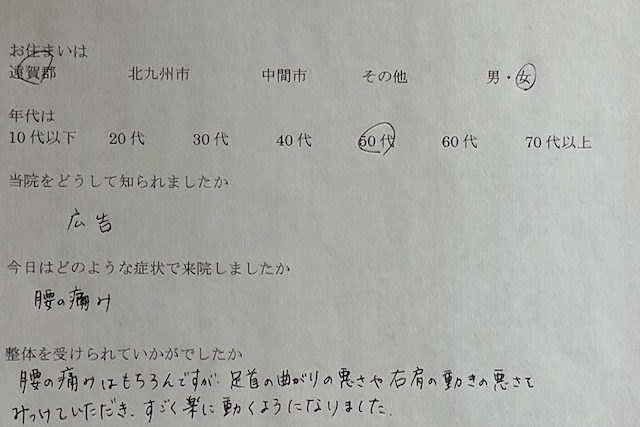 お住まいは
遠賀郡 北九州市 中間市 その他 男・女
年代は
10代以下 20代 30代 40代 50代 60代 70代以上
当院をどうして知られましたか
広告
今日はどのような症状で来院しましたか
腰の痛み
整体を受けられていかがでしたか
腰の痛みはもちろんですが、足首の曲がりの悪さや右肩の動きの悪さて
みつけていただき、すごく楽に動くようになりました。